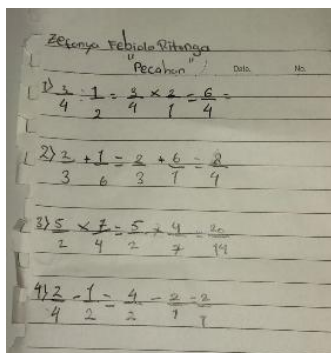 Zefanya Febiola Ritonga
"Pecahan"
Date. No.
1) 3/4 : 1/2 = 3/4 × 2/1 = 6/4 =
2) 2/3 + 1/6 = 2/3 + 6/1 = 8/4
3) 5/2 × 7/4 = 5/2 × 4/7 = 20/14
4) 2/4 - 1/2 = 4/2 - 2/1 = 2/1